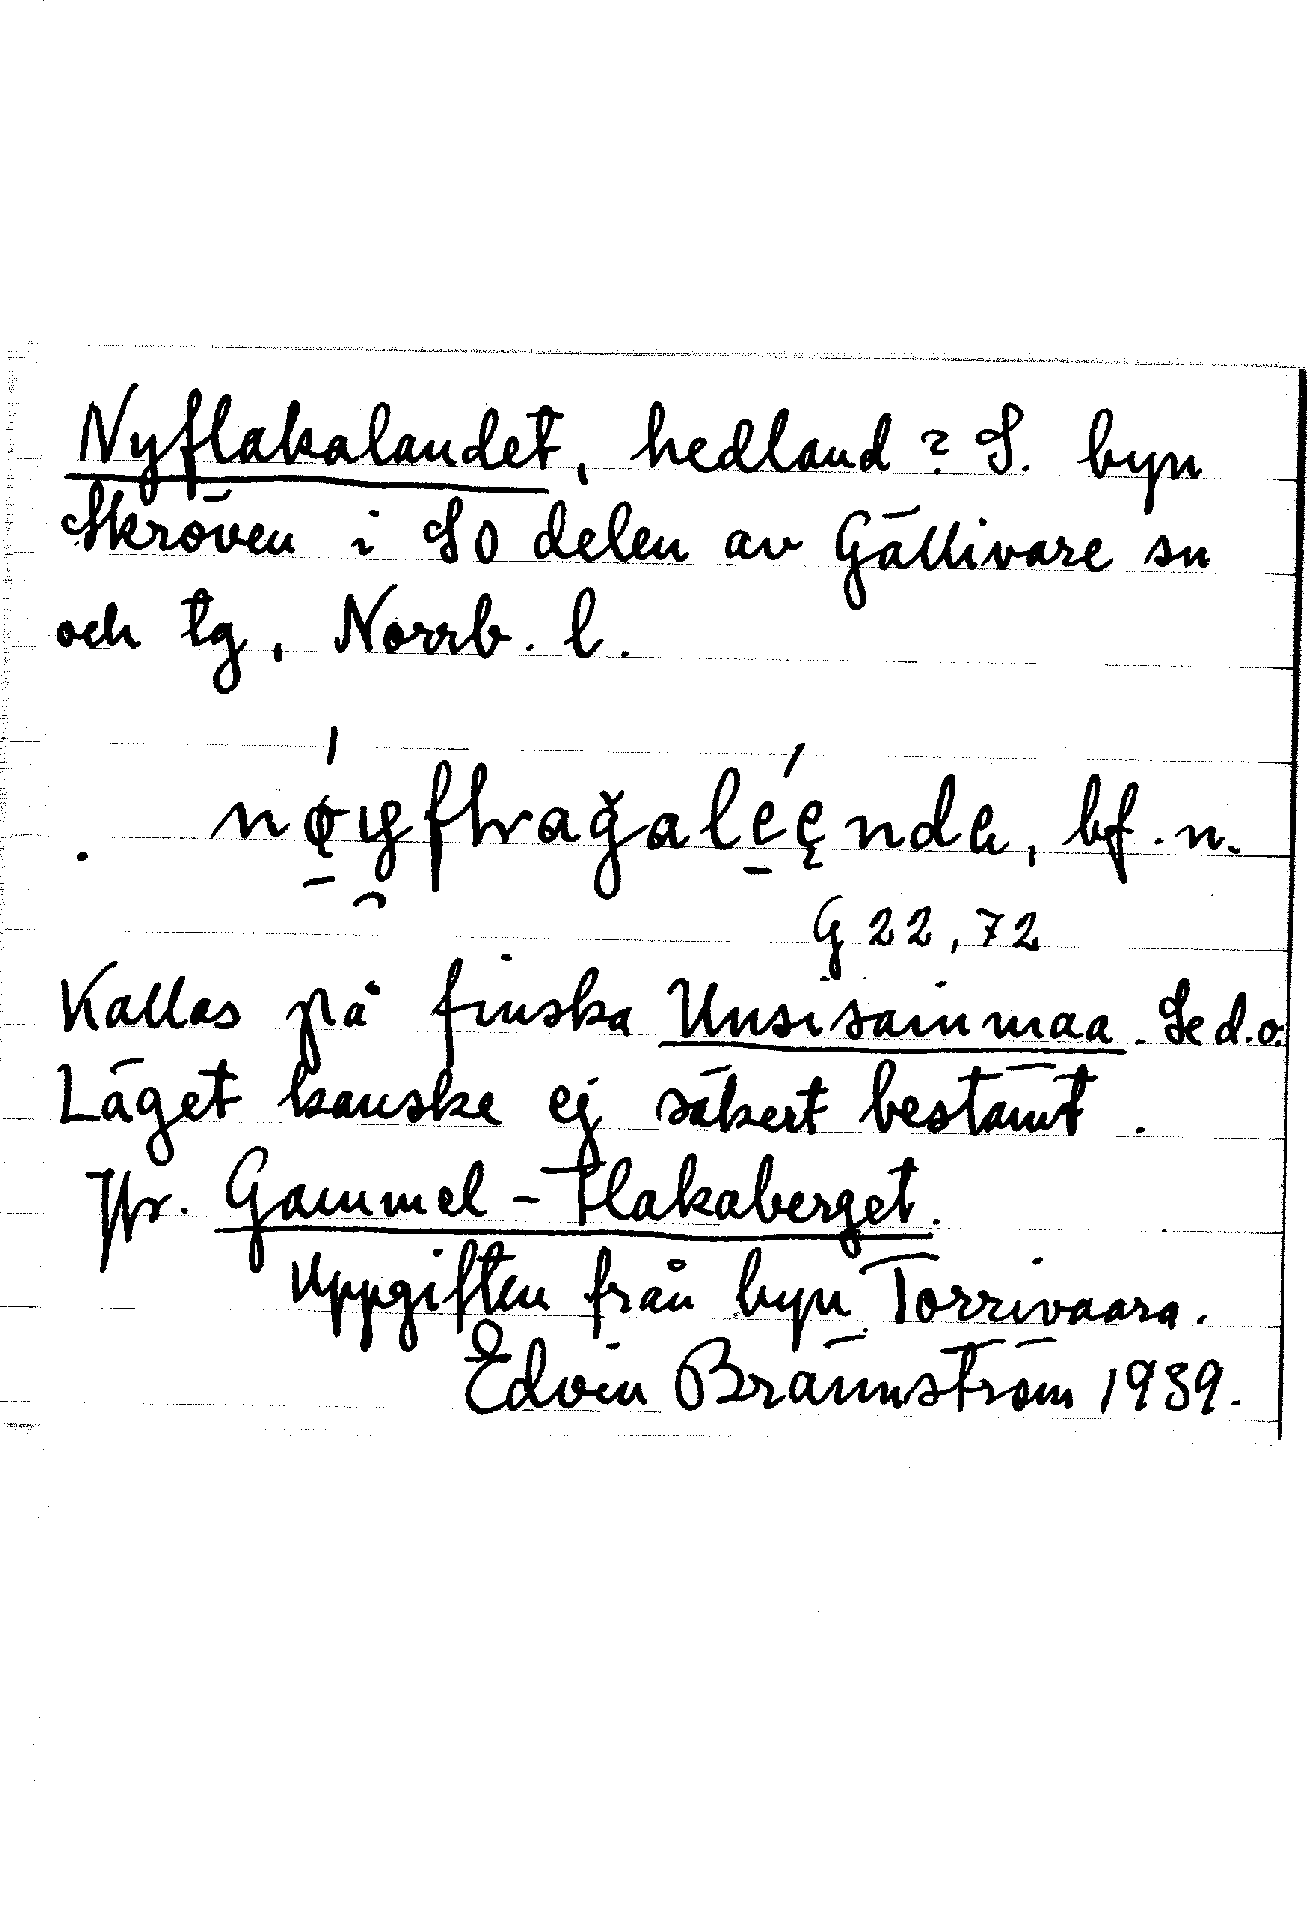 Nyflakalandet, hedland? S. byn
Skröven i SO delen av Gällivare sn
och tg, Norrb. l.
bf. n.
G 22,72
Kallas på finska Unsisainmaa. Se d.o.
Läget kanske ej säkert bestämt.
Jfr. Gammel-Flakaberget.
Uppgiften från byn Torrivaara.
Edvin Brännström 1939.